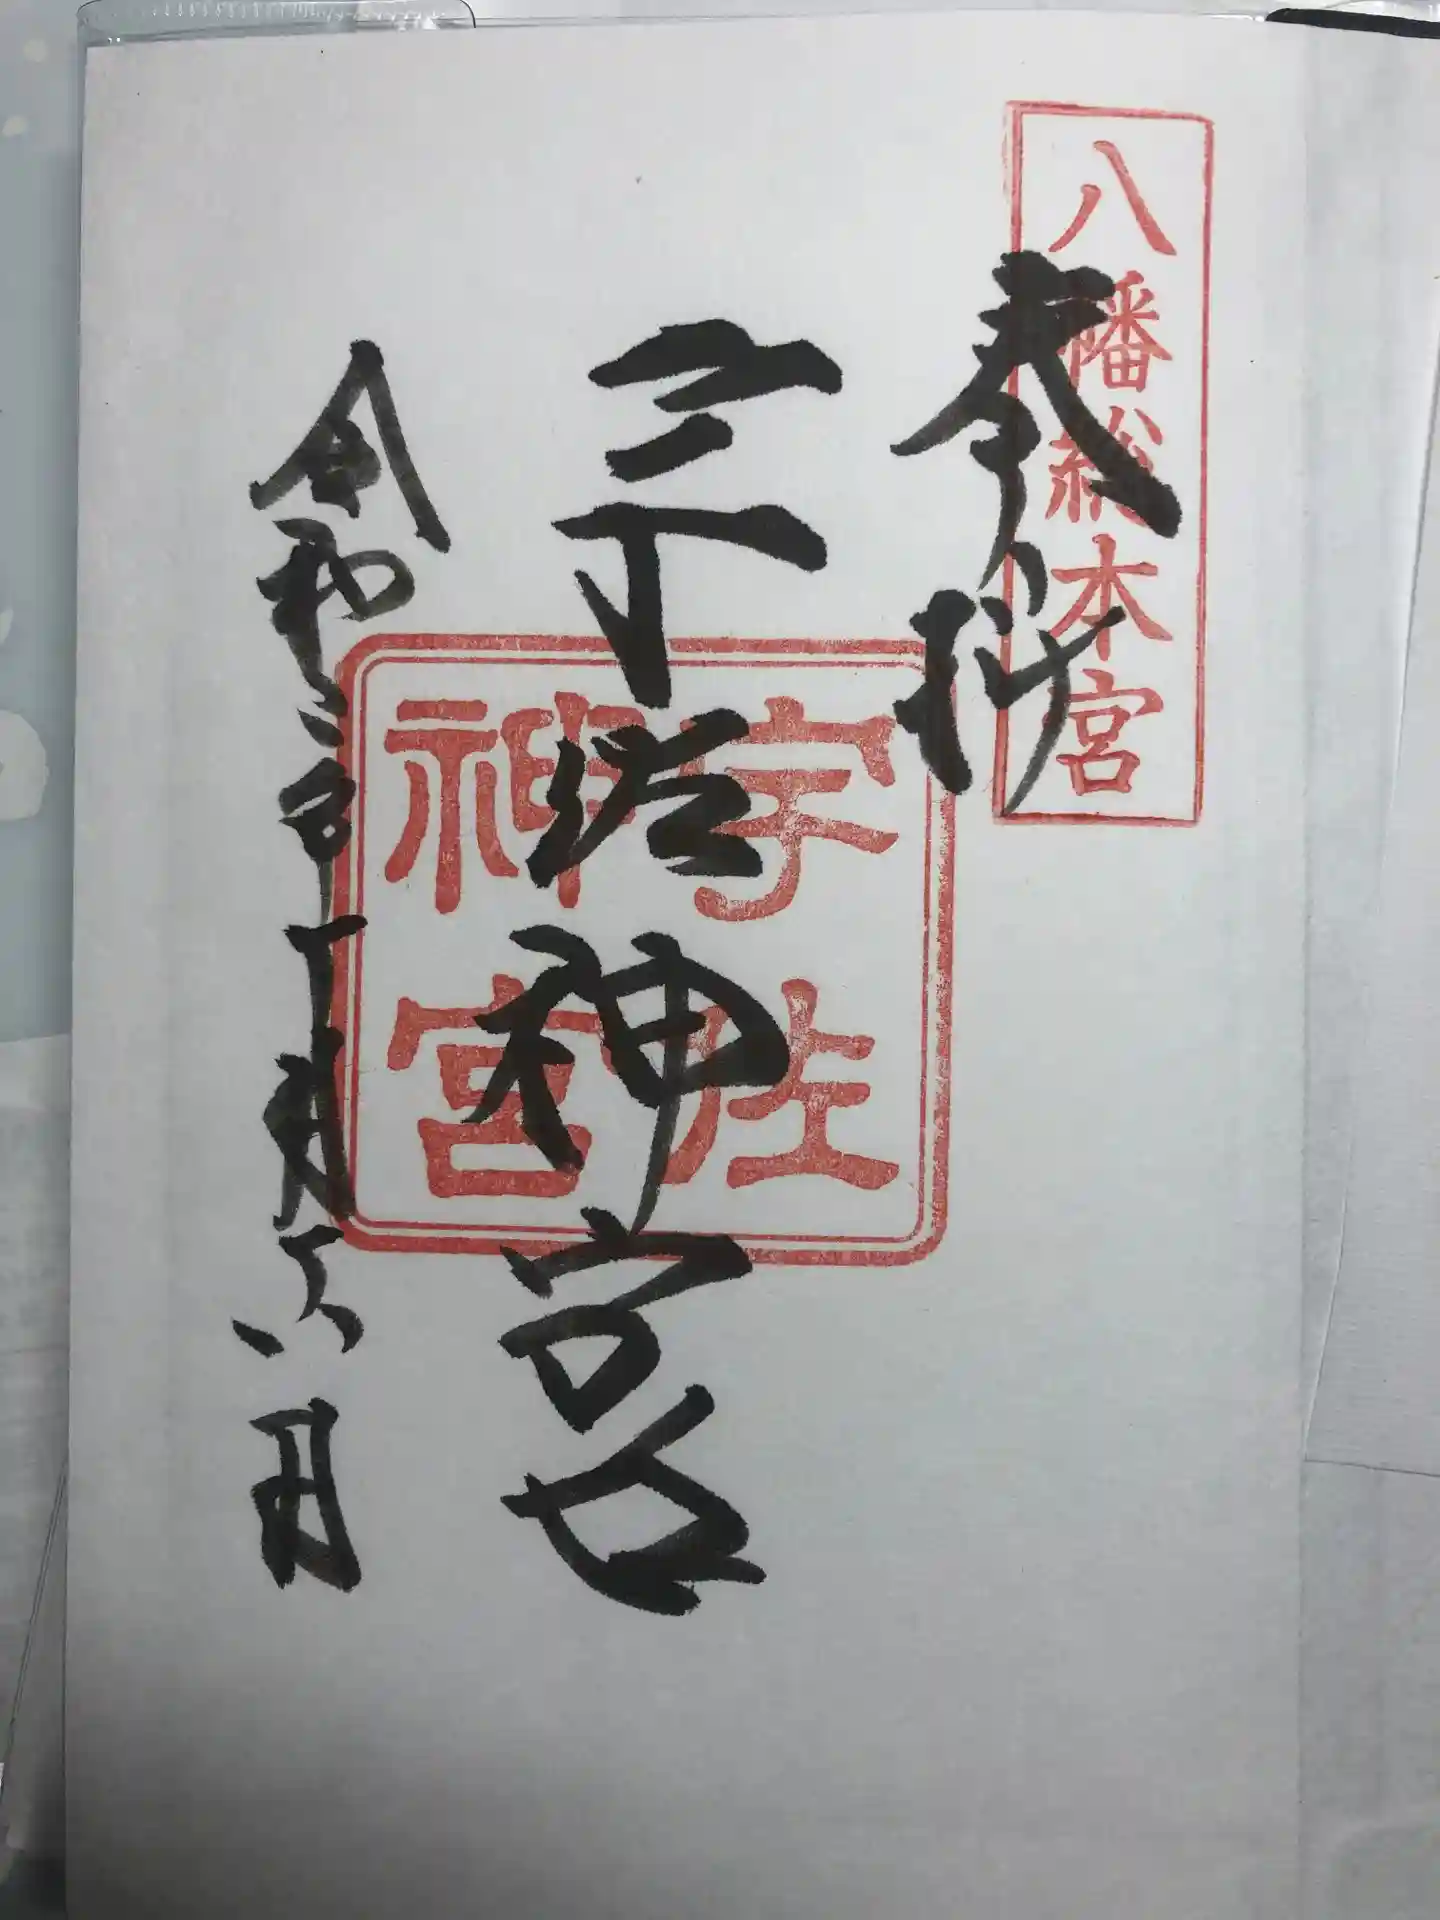 八幡総本宮
奉拝
宇佐神宮
宇佐
神宮
令和二年十月六日